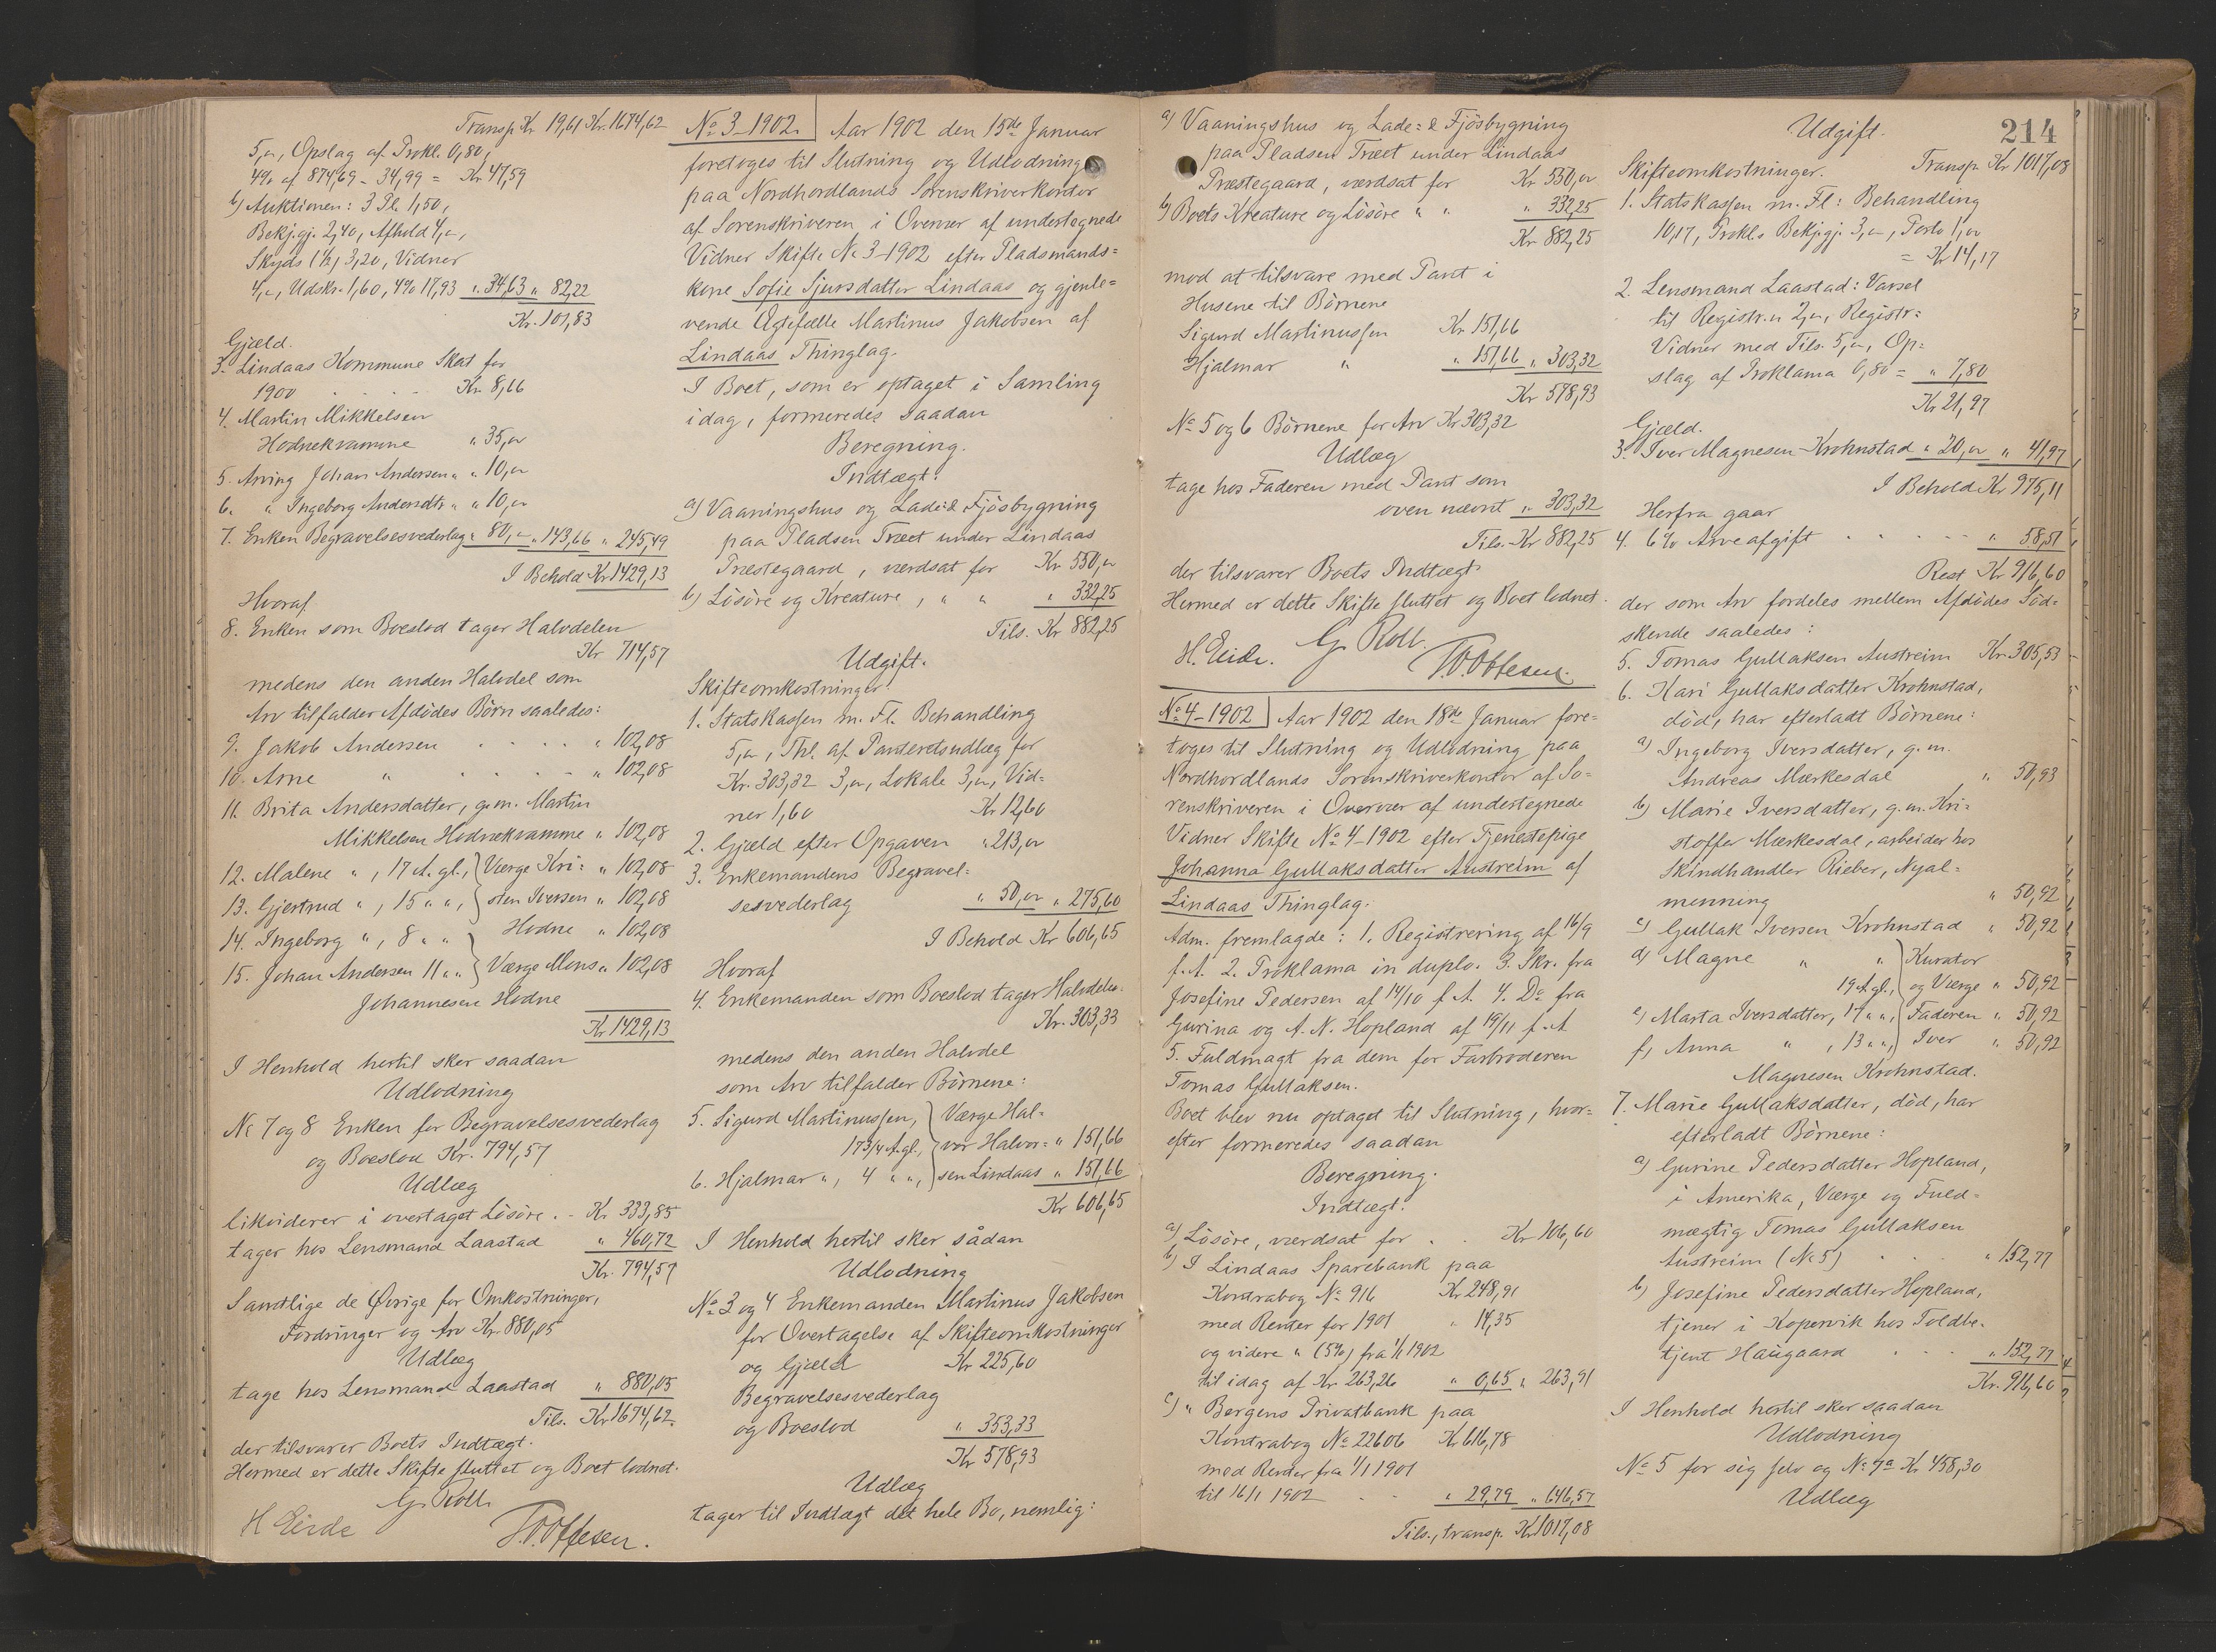 Transp. Kr 19,61 Kr. 1674,62
5,„, Opslag af Prokl. 0,80,
4% af 874,69 - 34,99 = Kr 47,59
b) Auktionen: 3 Pl. 1,50,
Bekj.gj. 2,40, Afhold 4,„,
Skyds (1 k) 3,20, Vidner
4,„, Udskr. 1,60, 4% 17,93 „ 34,63 „ 82,22
Kr. 101,83
Gjæld.
3. Lindaas Kommune Skat for
1900 . . . . Kr 8,66
4. Martin Mikkelsen
Hodnekvamme „ 35,„
5. Arving Johan Andersen „ „ 10,„
6. „ Ingeborg Andersdtr. „ „ 10,„
7. Enken Begravelsesvederlag „ 80,„ „ 143,66 „ 245,49
I Behold Kr 1429,13
Hvoraf
8. Enken som Boeslod tager Halvdelen
Kr 714,57
medens den anden Halvdel som
Arv tilfalder Afdødes Børn saaledes:
9. Jakob Andersen . . . . „ 102,08
10. Arne „ . . . . „ 102,08
11. Brita Andersdatter, g. m. Martin
Mikkelsen Hodnekvamme „ 102,08
12. Malene „, 17 A. gl., Værge Kri= „ 102,08
13. Gjertrud „, 15 „ „, sten Iversen „ 102,08
14. Ingeborg „, 8 „ „ Hodne „ 102,08
15. Johan Andersen 11 „ „ Værge Mons „ 102,08
Johannesen Hodne
Kr 1429,13
I Henhold hertil sker saadan
Udlodning
No 7 og 8 Enken for Begravelsesvederlag
og Boeslod Kr. 794,57
Udlæg
likviderer i overtaget Løsøre . - Kr 333,85
tager hos Lensmand Laastad „ 460,72
Kr. 794,57
Samtlige de Øvrige for Omkostninger,
Fordringer og Arv Kr. 880,05
Udlæg
tage hos Lensmand Laastad „ 880,05
Tils. Kr 1674,62
der tilsvarer Boets Indtægt.
Hermed er dette Skifte sluttet og Boet lodnet.
G. Roll
H Eide
T. O. Ottesen.
No 3-1902. Aar 1902 den 15de Januar
foretoges til Slutning og Udlodning
paa Nordhordlands Sorenskriverkontor
af Sorenskriveren i Overvær af undertegnede
Vidner Skifte No 3-1902 efter Pladsmands=
kone Sofie Sjursdatter Lindaas og gjenle=
vende Ægtefælle Martinus Jakobsen af
Lindaas Thinglag.
I Boet, som er optaget i Samling
idag, formeredes saadan
Beregning.
Indtægt:
a) Vaaningshus og Lade= & Fjøsbygning
paa Pladsen Træet under Lindaas
Præstegaard, værdsat for Kr 550,„
b) Løsøre og Kreature, „ „ „ 332,25
Tils. Kr 882,25
Udgift.
Skifteomkostninger.
1. Statskassen m. Fl. Behandling
5,„, Thl. af Panteretsudlæg for
Kr. 303,32 3,„, Lokale 3,„, Vid=
ner 1,60 Kr 12,60
2. Gjæld efter Opgaven „ 213,„
3. Enkemandens Begravel=
sesvederlag „ 50,„ „ 275,60
I Behold Kr 606,65
Hvoraf
4. Enkemanden som Boeslod tager Halvdelen
Kr. 303,33
medens den anden Halvdel
som Arv tilfalder Børnene:
5. Sigurd Martinussen, Værge Hal=
17 3/4 A. gl., vor Halvor= „ 151,66
6. Hjalmar „, 4 „ „, sen Lindaas „ 151,66
Kr 606,65
I Henhold hertil sker sådan
Udlodning
No 3 og 4 Enkemanden Martinus Jakobsen
for Overtagelse af Skifteomkostninger
og Gjæld Kr 225,60
Begravelsesvederlag
og Boeslod „ 353,33
Kr 578,93
Udlæg
tager til Indtægt det hele Bo, nemlig:
a) Vaaningshus og Lade= & Fjøsbygning
paa Pladsen Træet under Lindaas
Præstegaard, værdsat for Kr 550,„
b) Boets Kreature og Løsøre „ „ „ 332,25
Kr 882,25
mod at tilsvare med Pant i
Husene til Børnene
Sigurd Martinussen Kr 151,66
Hjalmar „ „ 151,66 „ 303,32
Kr 578,93
No 5 og 6 Børnene for Arv Kr 303,32
Udlæg
tage hos Faderen med Pant som
oven nævnt „ 303,32
Tils. Kr 882,25
der tilsvarer Boets Indtægt.
Hermed er dette Skifte sluttet og Boet lodnet.
H. Eide. G. Roll.
T. O. Ottesen.
No 4-1902 Aar 1902 den 18de Januar fore=
toges til Slutning og Udlodning paa
Nordhordlands Sorenskriverkontor af So=
renskriveren i Overvær af undertegnede
Vidner Skifte No 4-1902 efter Tjenestepige
Johanna Gullaksdatter Austreim af
Lindaas Thinglag.
Adm. fremlagde: 1. Registrering af 16/9
f. A. 2. Proklama in duplo. 3. Skr. fra
Josefine Pedersen af 14/10 f. A. 4. Do fra
Gurina og A. N. Hopland af 19/11 f. A
5. Fuldmagt fra dem for Farbroderen
Tomas Gullaksen.
Boet blev nu optaget til Slutning, hvor=
efter formeredes saadan
Beregning.
Indtægt:
a) Løsøre, værdsat for . . Kr 106,60
b) I Lindaas Sparebank paa
Kontrabog No 916 Kr 248,91
med Renter for 1901 „ 14,35
og videre „ (5%) fra 1/1 1902
til idag af Kr 263,26 „ 0,65 „ 263,91
c) „ Bergens Privatbank paa
Kontrabog No 22606 Kr 616,78
med Renter fra 1/1 1901
til 16/1 1902 . . „ 29,79 „ 646,57
Tils., transp. Kr 1017,08
214
Udgift.
Skifteomkostninger. Transp. Kr 1017,08
1. Statskassen m. Fl: Behandling
10,17, Prokl.s Bekj.gj. 3,„, Porto 1,„
= Kr 14,17
2. Lensmand Laastad: Varsel
til Registr. 2,„, Registr=
Vidner med Tils. 5,„, Op=
slag af Proklama 0,80 = „ 7,80
Kr 21,97
Gjæld.
3. Iver Magnesen Krohnstad „ 20,„ „ 41,97
I Behold Kr 975,11
Herfra gaar
4. 6% Arveafgift . . . . „ 58,51
Rest Kr 916,60
der som Arv fordeles mellem Afdødes Sød=
skende saaledes:
5. Tomas Gullaksen Austreim Kr. 305,53
6. Kari Gullaksdatter Krohnstad,
død, har efterladt Børnene:
a) Ingeborg Iversdatter, g. m.
Andreas Mærkesdal „ 50,93
b) Marie Iversdatter, g. m. Kri=
stoffer Mærkesdal, arbeider hos
Skindhandler Rieber, Nyal=
menning „ 50,92
c) Gullak Iversen Krohnstad „ 50,92
d) Magne „ „ Kurator
19 A. gl., og Værge „ 50,92
e) Marta Iversdatter, 17 „ „, Faderen „ 50,92
f) Anna „, 13 „ „, Iver „ 50,92
Magnesen Krohnstad.
7. Marie Gullaksdatter, død, har
efterladt Børnene:
a) Gurine Pedersdatter Hopland,
i Amerika, Værge og Fuld=
mægtig Tomas Gullaksen
Austreim (No 5) . . . „ 152,77
b) Josefine Pedersdatter Hopland,
tjener i Kopervik hos Toldbe=
tjent Haugaard . . . „ 152,77
Kr. 916,60
I Henhold hertil sker saadan
Udlodning
No 5 for sig selv og No 7a Kr 458,30
Udlæg